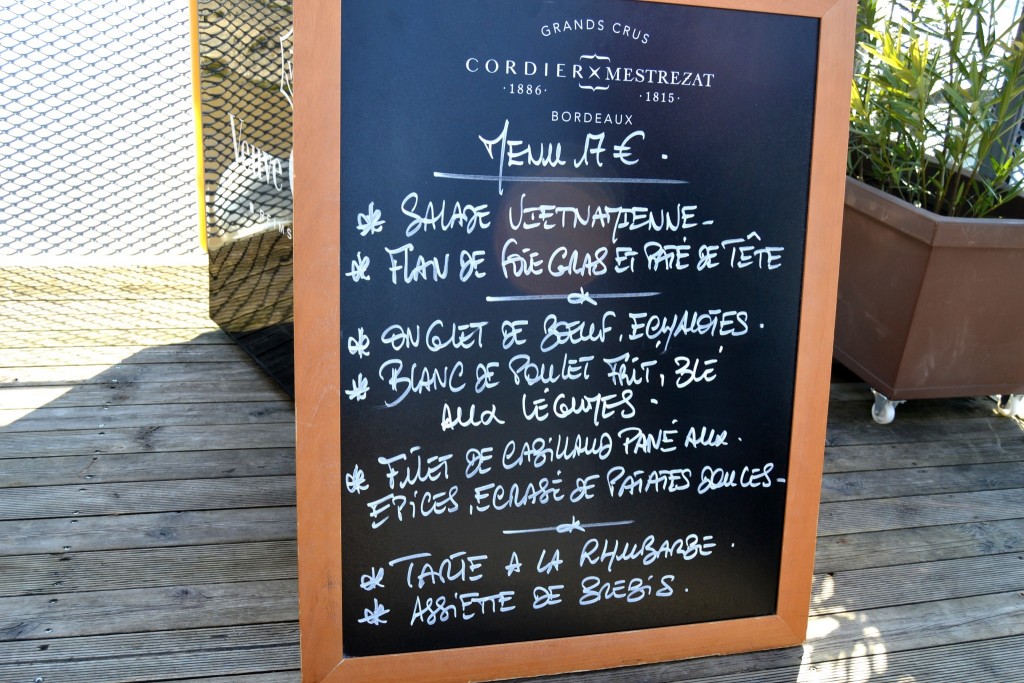 GRANDS CRUS
CORDIER MESTREZAT
·1886· ·1815·
BORDEAUX
MENU 17 €.
* SALADE VIETNAMIENNE-
* FLAN DE FOIE GRAS ET PATÉ DE TÊTE
* ONGLET DE BOEUF, ECHALOTES.
* BLANC DE POULET FRIT, BLÉ
AUX LÉGUMES.
* FILET DE CABILLAUD PANÉ AUX.
EPICES, ECRASÉ DE PATATES DOUCES-
* TARTE A LA RHUBARBE.
* ASSIETTE DE BREBIS.
Veuve
REIMS